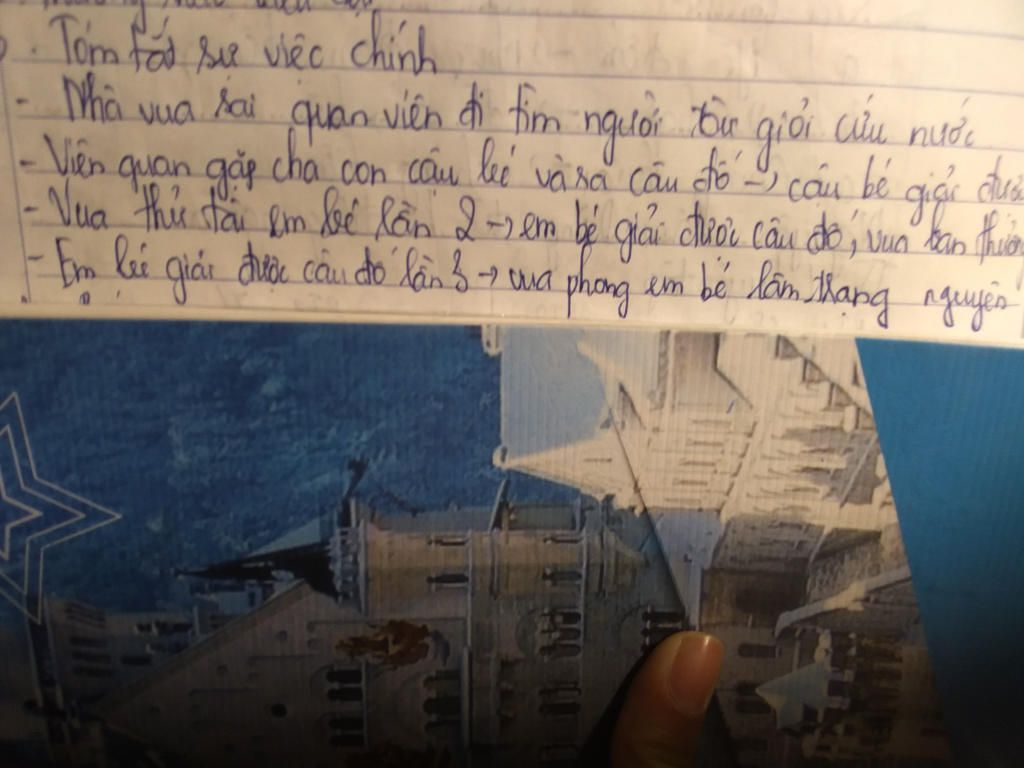 Tóm tắt sự việc chính
- Nhà vua sai quan viên đi tìm người tài giỏi cứu nước
- Viên quan gặp cha con cậu bé và ra câu đố → cậu bé giải được
- Vua thử tài em bé lần 2 → em bé giải được câu đố, vua ban thưởng
- Em bé giải được câu đố lần 3 → vua phong em bé làm trạng nguyên